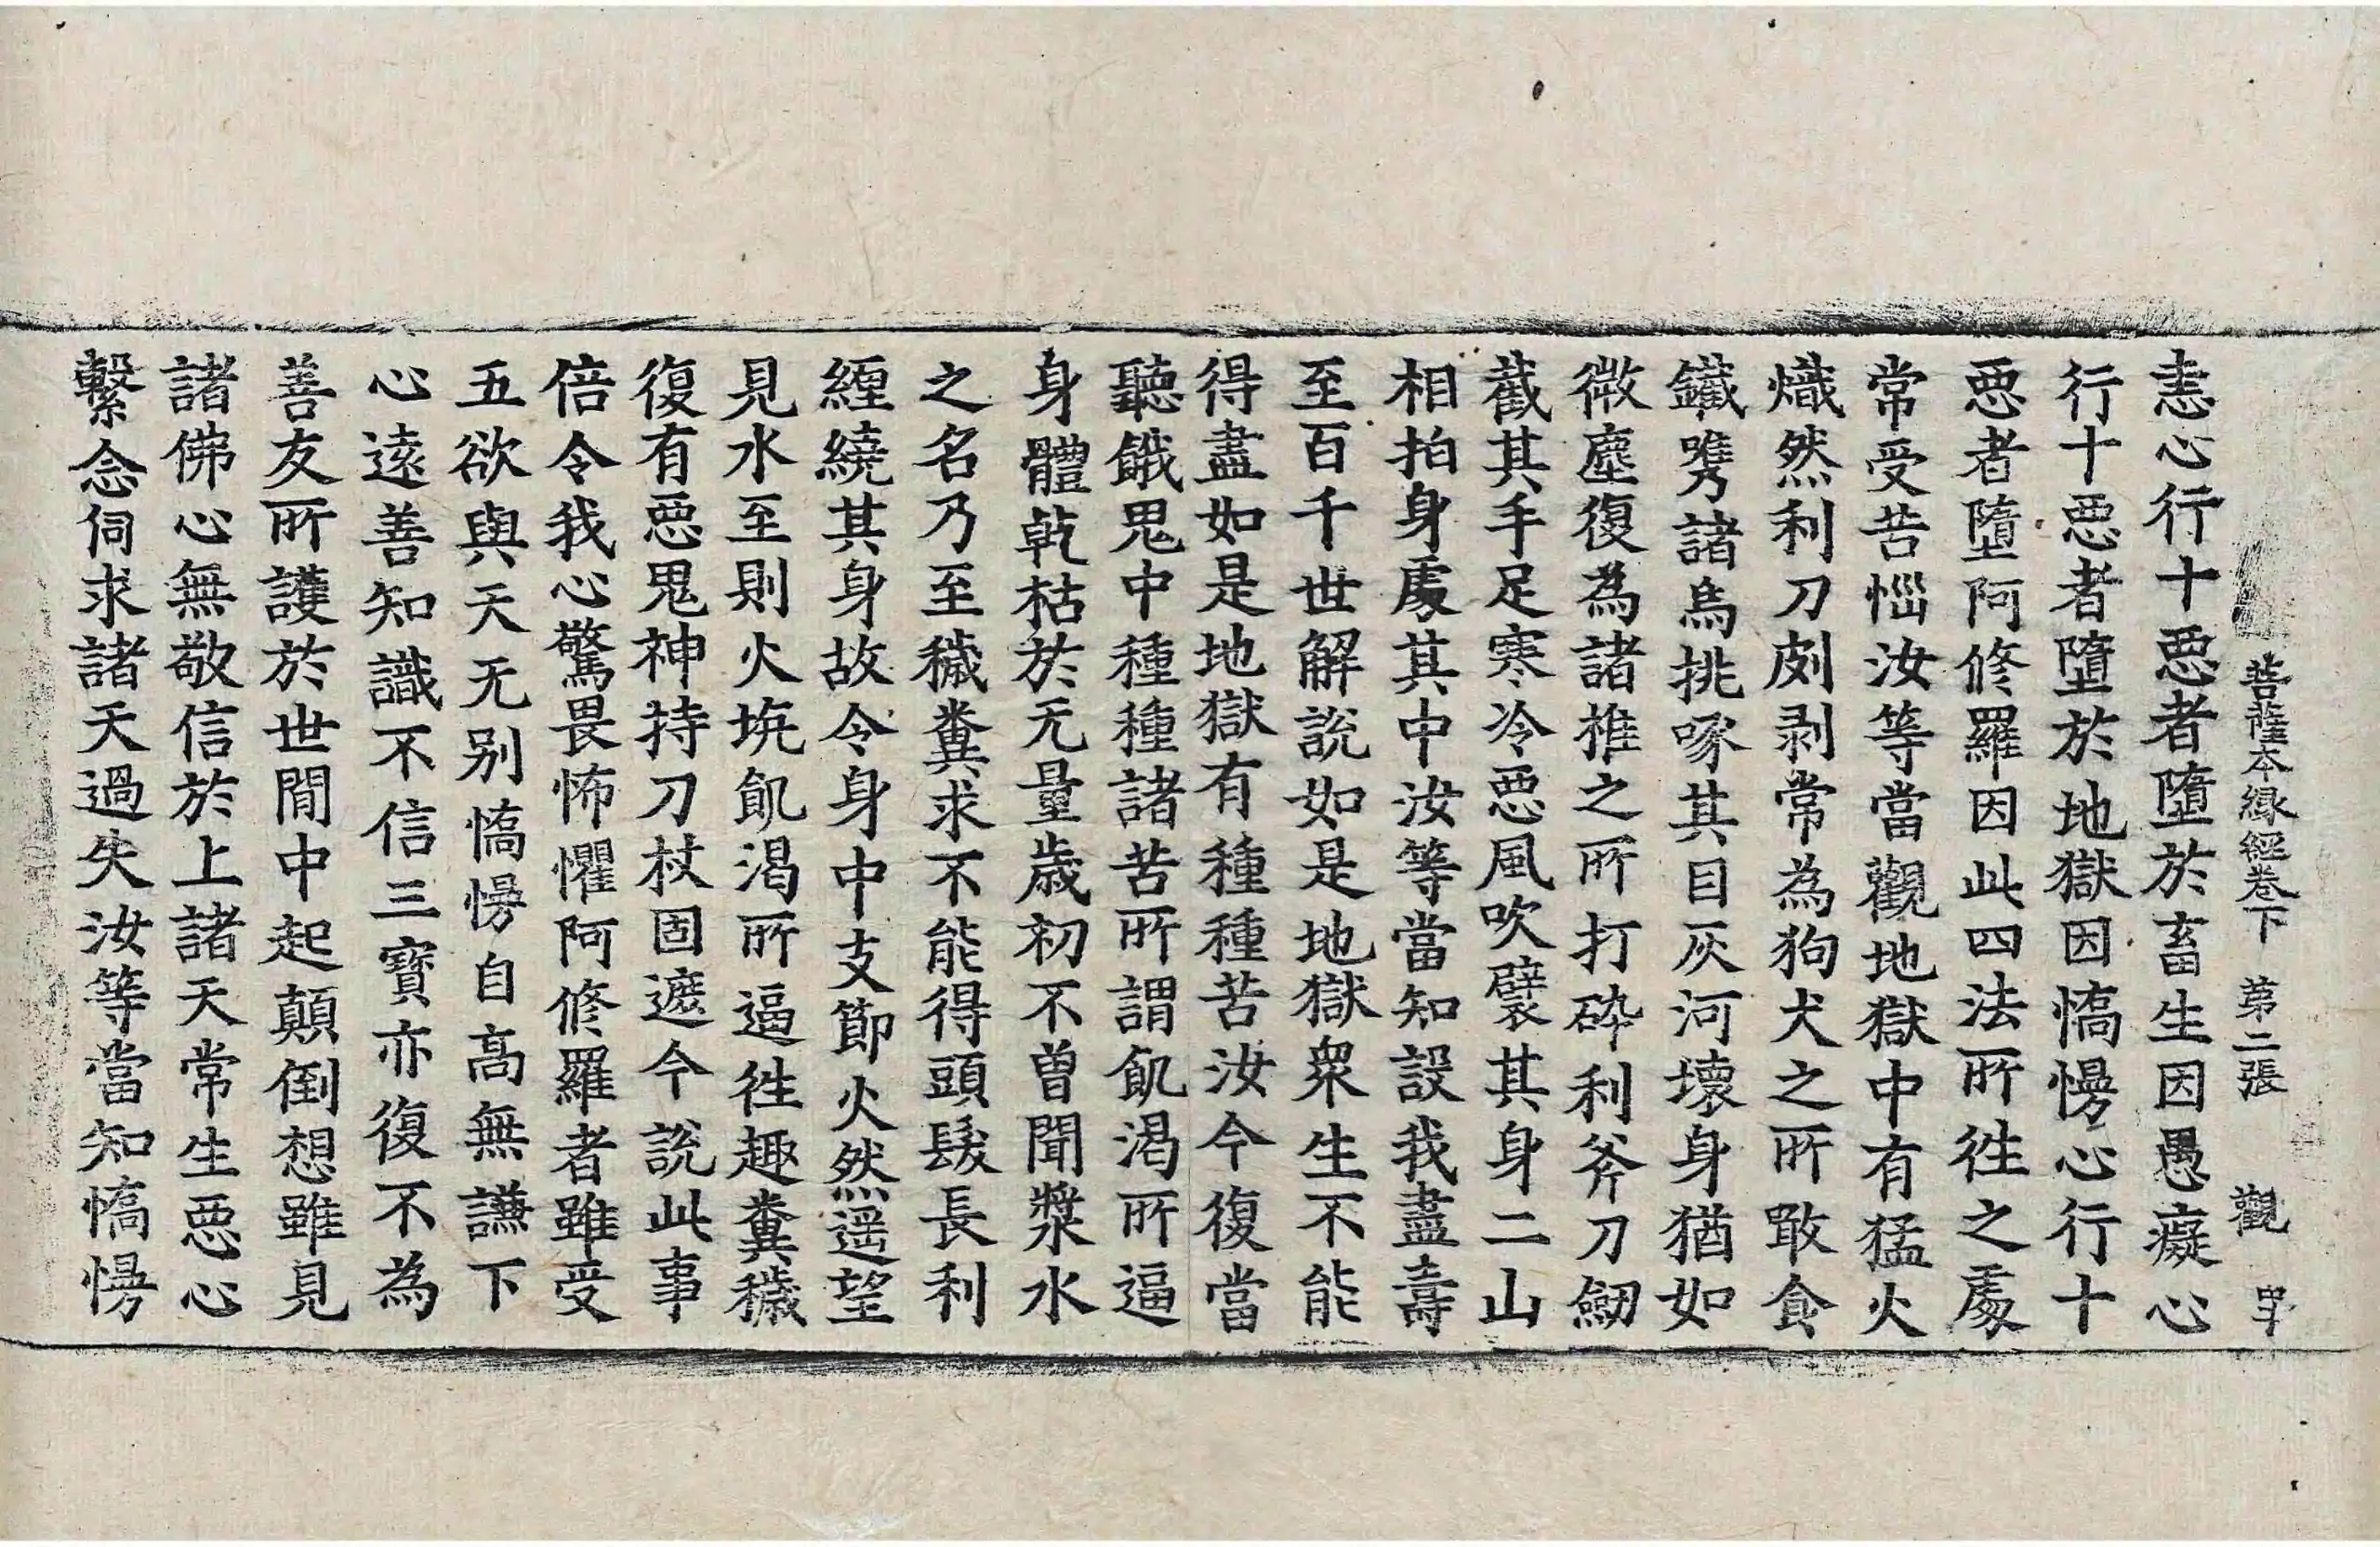 菩薩本緣經卷下 第二張 觀
恚心行十惡者墮於畜生因愚癡心
行十惡者墮於地獄因憍慢心行十
惡者墮阿修羅因此四法所徃之處
常受苦惱汝等當觀地獄中有猛火
熾然利刀剫剥常為狗犬之所噉食
鐵㭰諸烏挑啄其目灰河壞身猶如
微塵復為諸椎之所打碎利斧刀劒
截其手足寒冷惡風吹襞其身二山
相拍身處其中汝等當知設我盡壽
至百千世解說如是地獄衆生不能
得盡如是地獄有種種苦汝今復當
聽餓鬼中種種諸苦所謂飢渴所逼
身體乾枯於无量歲初不曾聞漿水
之名乃至穢糞求不能得頭髮長利
纏繞其身故令身中支節火然遥望
見水至則火坑飢渴所逼徃趣糞穢
復有惡鬼神持刀杖固遮今說此事
倍令我心驚畏怖懼阿修羅者雖受
五欲與天无别憍慢自高無謙下
心遠善知識不信三寶亦復不為
善友所護於世間中起顛倒想雖見
諸佛心無敬信於上諸天常生惡心
繫念伺求諸天過失汝等當知憍慢